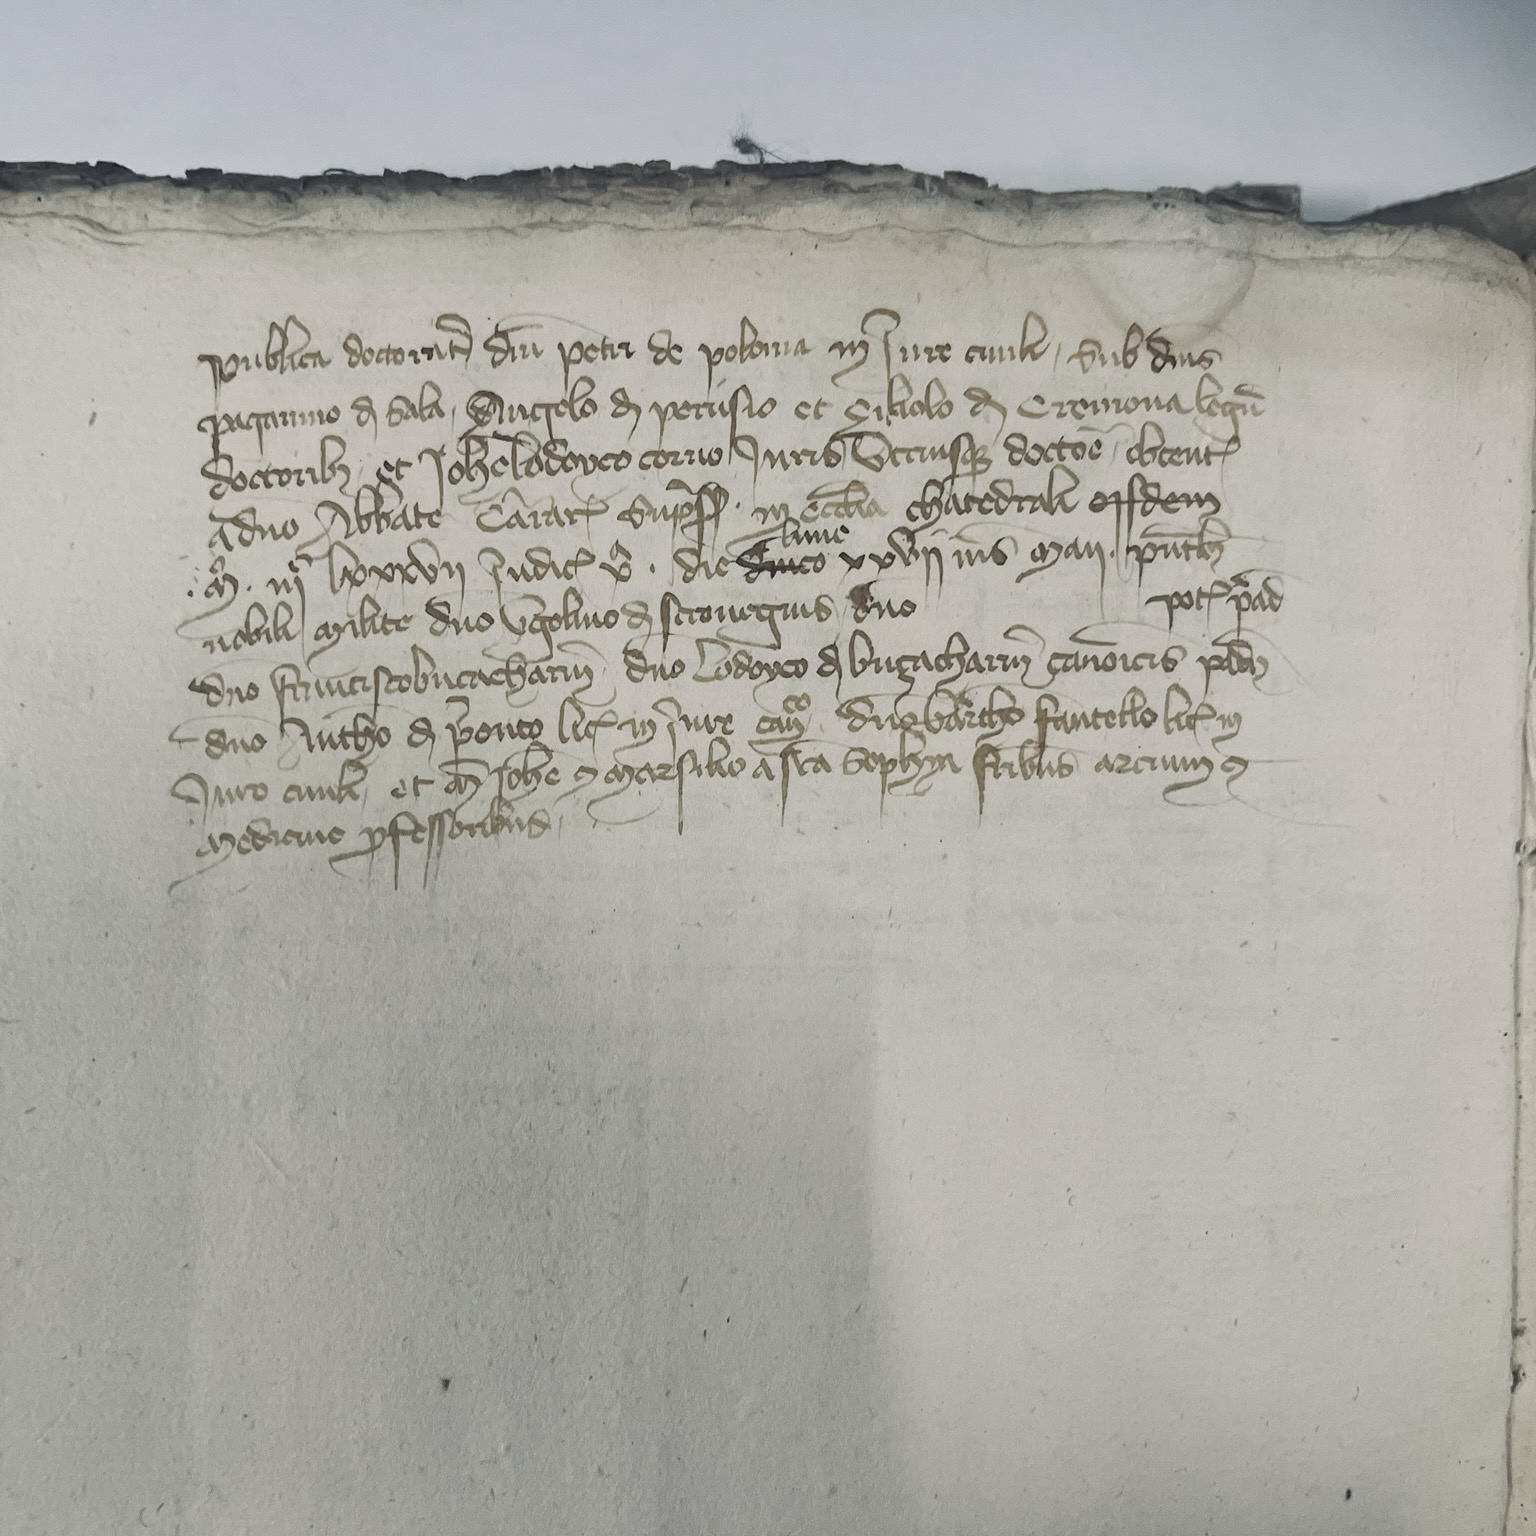 publica doctorat dni petri de polonia in Iure civili, sub dnis
paganino d sala, Angelo d perusio et Gilolo d Cremona legu
doctorib et Johelodovco corvo Juris Utriusq doctore obtent
a dno Abbate Carar Supsp. in ecclia chatedrali eisdem
. m . iii lxxxvii Indic x . die lune xxvii ms maii . pntib
nobili milite dno Ugolino d scrovegnis dno potr pad
dno francisco bucacharin dno Lodovco d buzacharin canonicis pad
dno Antho d ponto lic in Iure can dno bartho fantello lic in
Iure civili, et m Johe et marsilio a sca sophya fribus arcium et
medicine pfessoribus